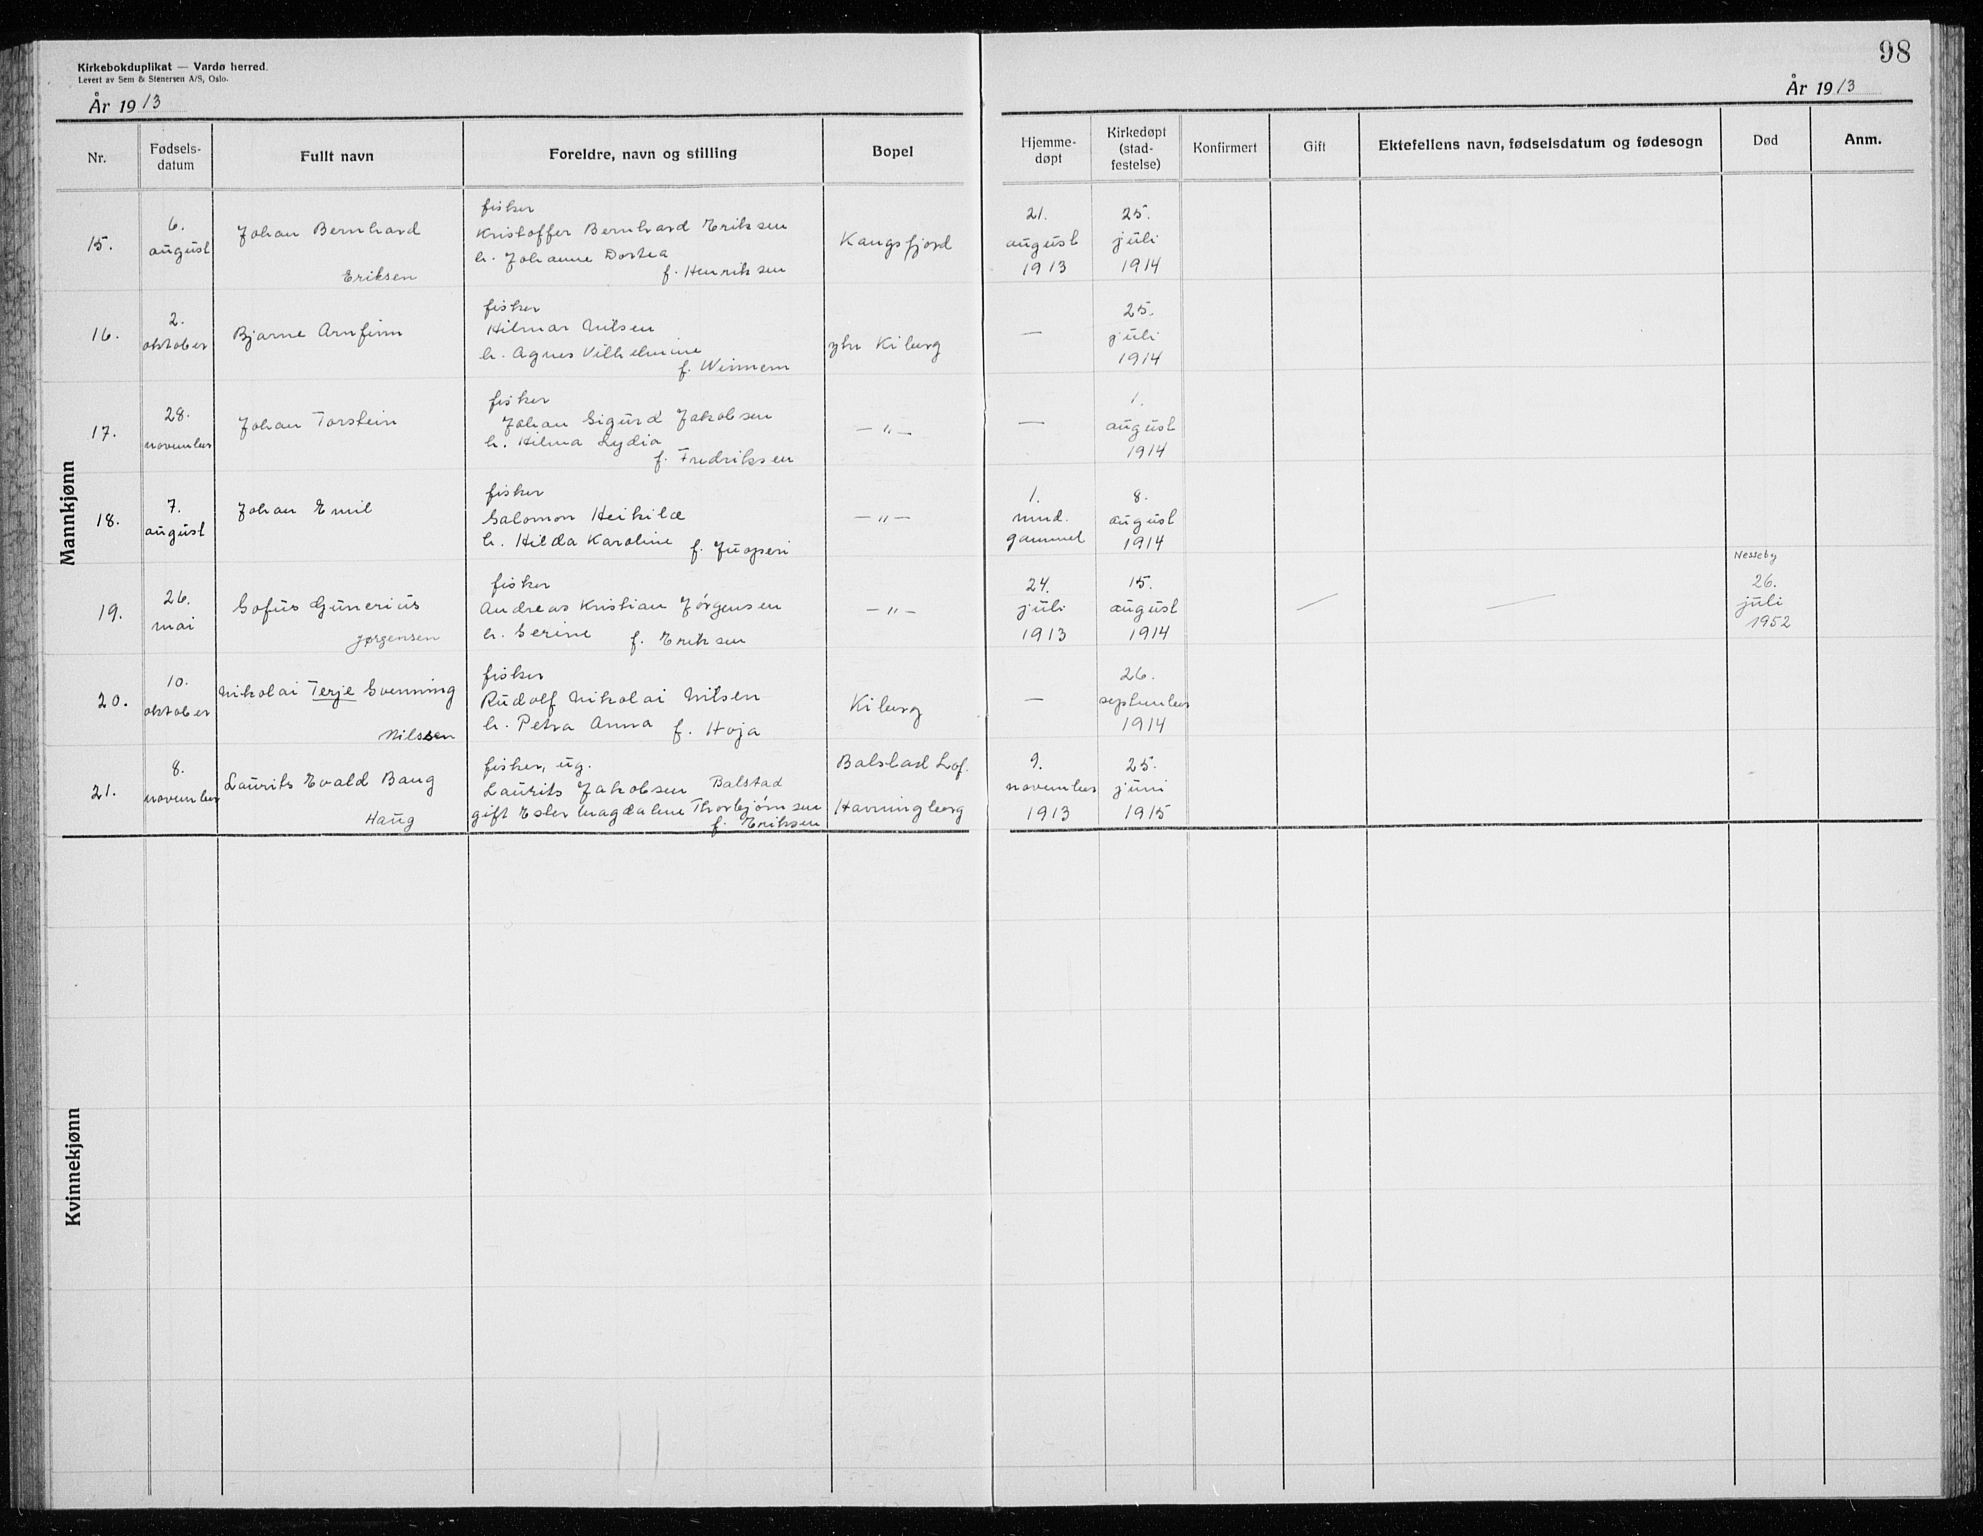 98
Kirkebokduplikat — Vardø herred.
Levert av Sem & Stenersen A/S, Oslo.
År 1913
År 1913
Nr.
Fødsels-
datum
Fullt navn
Foreldre, navn og stilling
Bopel
Hjemme-
døpt
Kirkedøpt
(stad-
festelse)
Konfirmert
Gift
Ektefellens navn, fødselsdatum og fødesogn
Død
Anm.
Mannkjønn
15.
6.
august
Johan Bernhard
Eriksen
fisker
Kristoffer Bernhard Eriksen
h. Johanne Dortea
f. Henriksen
Kangsfjord
21.
august
1913
25.
juli
1914
16.
2.
oktober
Bjarne Arnfinn
fisker
Hilmar Nilsen
h. Agnes Vilhelmine
f. Winnem
ytr Kiberg
—
25.
juli
1914
17.
28.
november
Johan Torstein
fisker
Johan Sigurd Jakobsen
h. Hilma Lydia
f. Fredriksen
— " —
—
1.
august
1914
18.
7.
august
Johan Emil
fisker
Salomon Heikilæ
h. Hilda Karoline
f. Juopperi
— " —
1.
mnd.
gammel
8.
august
1914
19.
26.
mai
Sofus Gunerius
Jørgensen
fisker
Andreas Kristian Jörgensen
h. Serine f. Eriksen
— " —
24.
juli
1913
15.
august
1914
—
—
Nesseby
26.
juli
1952
20.
10.
oktober
Nikolai Terje Svenning
Nilssen
fisker
Rudolf Nikolai Nilsen
h. Petra Anna f. Hoja
Kiberg
—
26.
september
1914
21.
8.
november
Laurits Evald Baug
Haug
fisker, ug.
Laurits Jakobsen Balstad
gift Ester Magdalene Thorbjørnsen
f. Eriksen
Balstad Lof.
Havningberg
9.
november
1913
25.
juni
1915
Kvinnekjønn